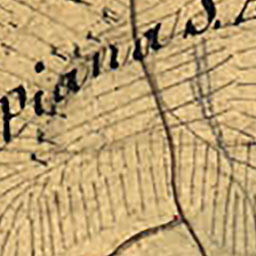 Piana S.